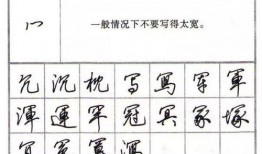 冖 一般情况下不要写得太宽。
冗 沉 枕 写 寫 军 軍
渾 運 罕 冠 冥 冢 塚